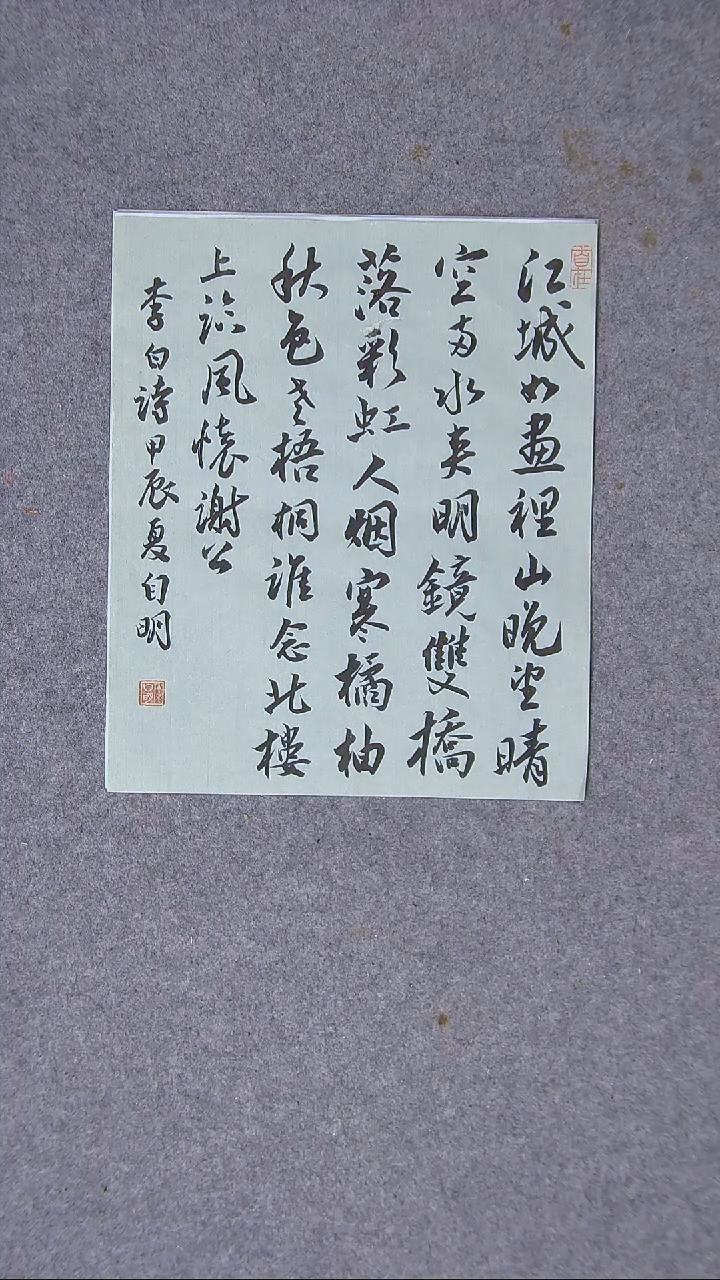 江城如畫裡山晚望晴
空兩水夾明鏡雙橋
落彩虹人烟寒橘柚
秋色老梧桐誰念北樓
上臨風懷謝公
李白詩甲辰夏自明